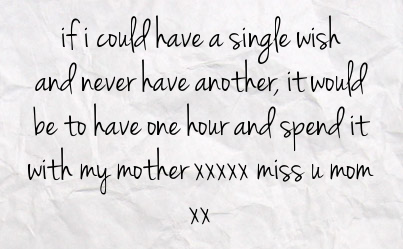 if i could have a single wish
and never have another, it would
be to have one hour and spend it
with my mother xxxxx miss u mom
xx